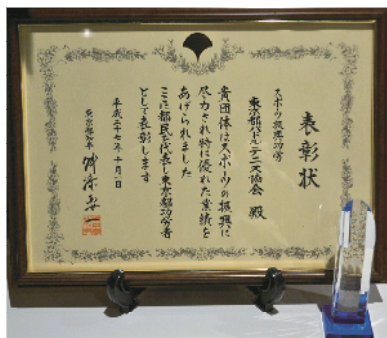 表彰状
スポーツ振興功労
東京都パドルテニス協会 殿
貴団体はスポーツの振興に
尽力され特に優れた業績を
あげられました
ここに都民を代表し東京都功労者
として表彰します
平成二十七年十月一日
東京都知事 舛添要一